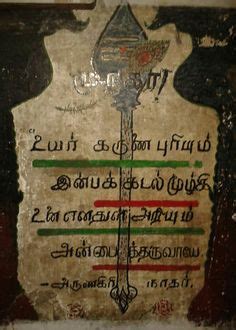 முருகா
உயர் கருணை புரியும்
இன்பக் கடல்மூழ்கி
உனை எனதுள் அறியும்
அன்பைத்தருவாயே
- அருணகிரி நாதர்.